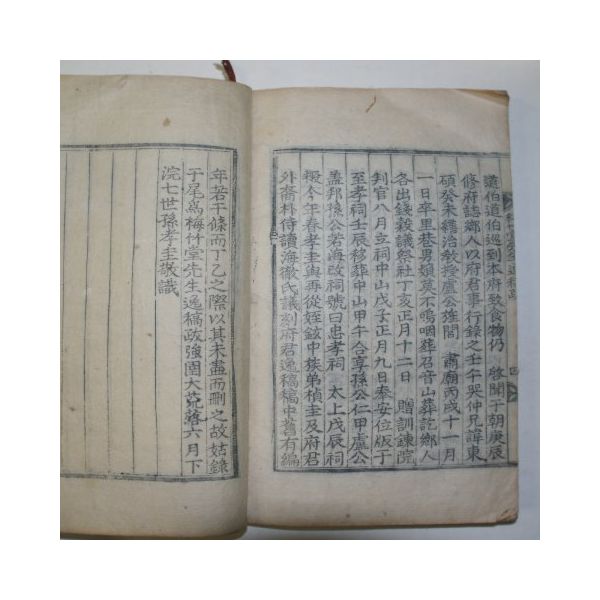 道伯道伯巡到本府致食物仍 啓聞于朝庚辰
修府誌鄕人以府君事行錄之壬午哭仲兄諱東
碩癸未繕治敎授盧公旌閭 肅廟丙戌十一月
一日卒里巷男類莫不嗚咽葬召音山葬訖鄕人
各出錢穀議祭社丁亥正月十二日 贈訓鍊院
判官八月立祠中山戊子正月九日奉安位版于
至孝祠壬辰移葬中山甲午合享孫公仁甲盧公
盖邦孫公若海改祠號曰忠孝祠 太上戊辰祠
撥今年春孝圭與再從姪鉉中族弟楨圭及府君
外裔朴侍讀海徹氏議刻府君逸稿稿中舊有編
年若干條而丁乙之際以其未盡而刪之故姑錄
于尾爲梅竹堂先生逸稿跋強圉大荒落六月下
浣七世孫孝圭敬識